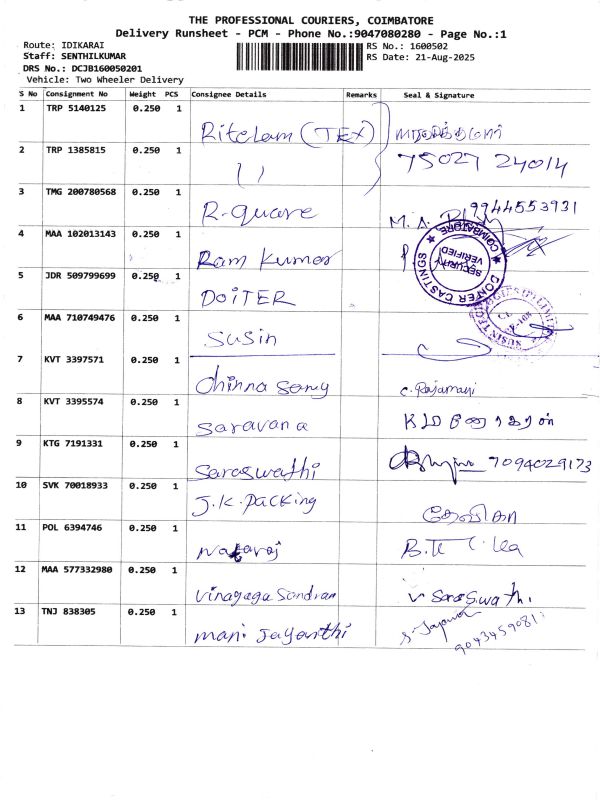 THE PROFESSIONAL COURIERS, COIMBATORE
Delivery Runsheet - PCM - Phone No.:9047080280 - Page No.:1
Route: IDIKARAI
RS No.: 1600502
Staff: SENTHILKUMAR
RS Date: 21-Aug-2025
DRS No.: DCJB160050201
Vehicle: Two Wheeler Delivery
S No Consignment No Weight PCS Consignee Details Remarks Seal & Signature
1 TRP 5140125 0.250 1 (TEX)
2 TRP 1385815 0.250 1 " 75027 24014
3 TMG 200780568 0.250 1 R-quare M. A. 9944553931
4 MAA 102013143 0.250 1 Ram Kumar
COIMBATORE SECURITY VERIFIED CASTINGS
5 JDR 509799699 0.250 1 DOITER
6 MAA 710749476 0.250 1 Susin
SUSIN
7 KVT 3397571 0.250 1 Chinna Samy C. Rajamani
8 KVT 3395574 0.250 1 Saravana
9 KTG 7191331 0.250 1 Saraswathi 7094029173
10 SVK 70018933 0.250 1 J.K. Packing
11 POL 6394746 0.250 1 Nataraj
12 MAA 577332980 0.250 1 Vinayaga Sundram V Saraswathi
13 TNJ 838305 0.250 1 Mani Jayanthi 9043459081